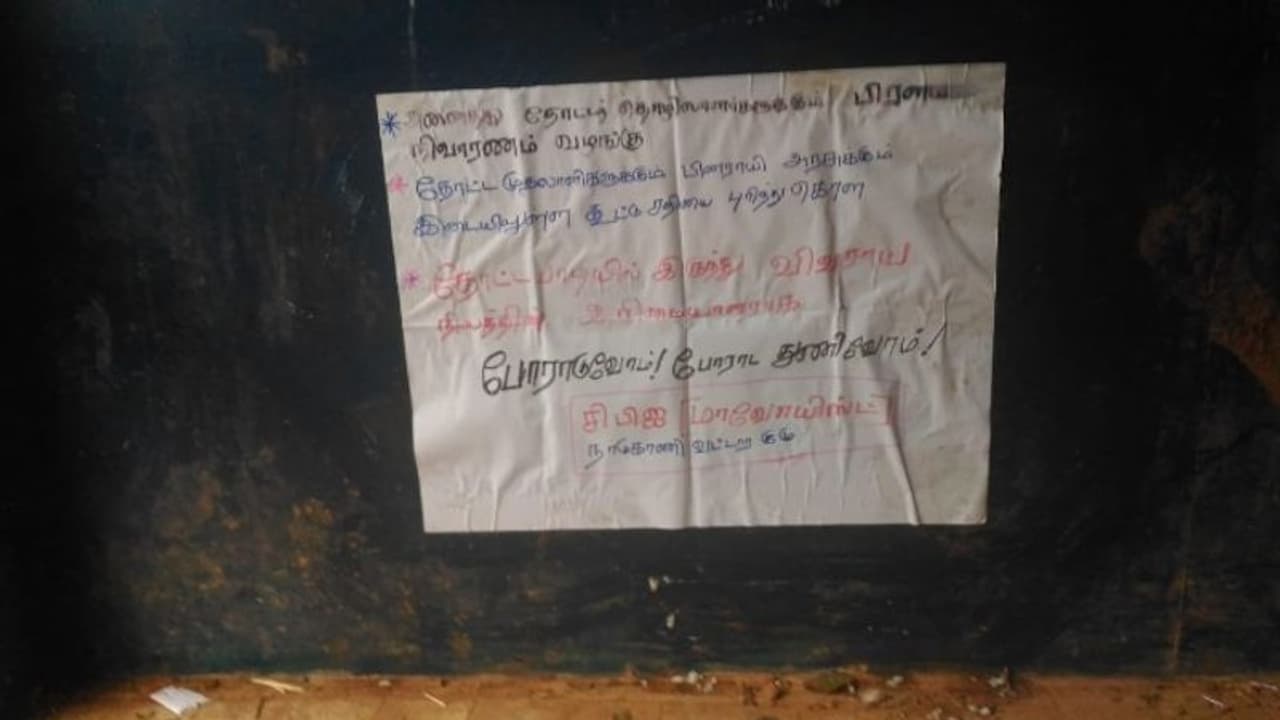 * அனைத்து தோட்டத் தொழிலாளர்களுக்கும் பிரளய
நிவாரணம் வழங்கு
* தோட்ட முதலாளிகளுக்கும் பினராயி அரசுக்கும்
இடையிலுள்ள கூட்டு சதியை புரிந்து கொள்
* தோட்ட பாடியில் இருந்து விவசாய
நிலத்தின் உரிமையாளராக
போராடுவோம்! போராட துணிவோம்!
சி பி ஐ [மாவோயிஸ்ட்]
நாடுகாணி வட்டார குழு